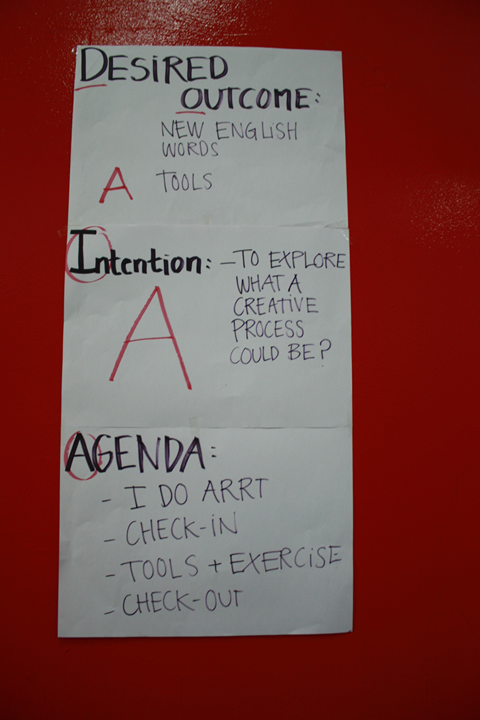 DESIRED
OUTCOME:
NEW ENGLISH
WORDS
A TOOLS
Intention: - TO EXPLORE
WHAT A
CREATIVE
A PROCESS
COULD BE?
AGENDA:
- I DO ARRT
- CHECK-IN
- TOOLS + EXERCISE
- CHECK-OUT